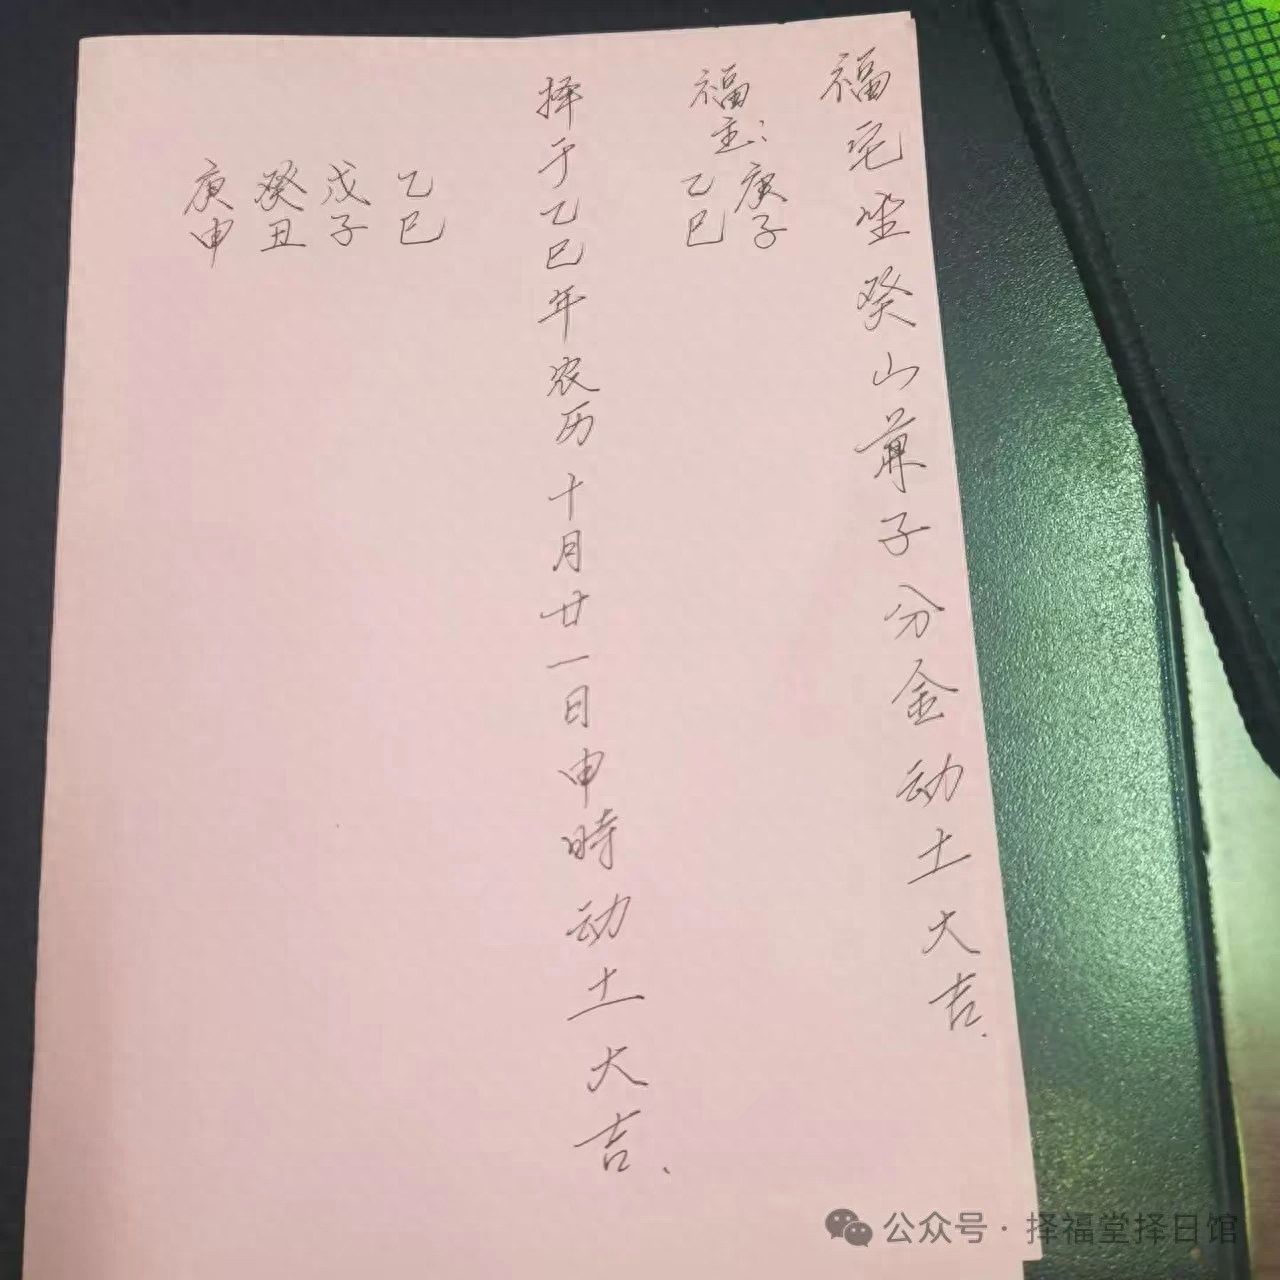 福宅坐癸山兼子分金动土大吉.
福主:
庚子
乙巳
择于乙巳年农历十月廿一日申時动土大吉.
乙巳
戊子
癸丑
庚申
公众号·择福堂择日馆